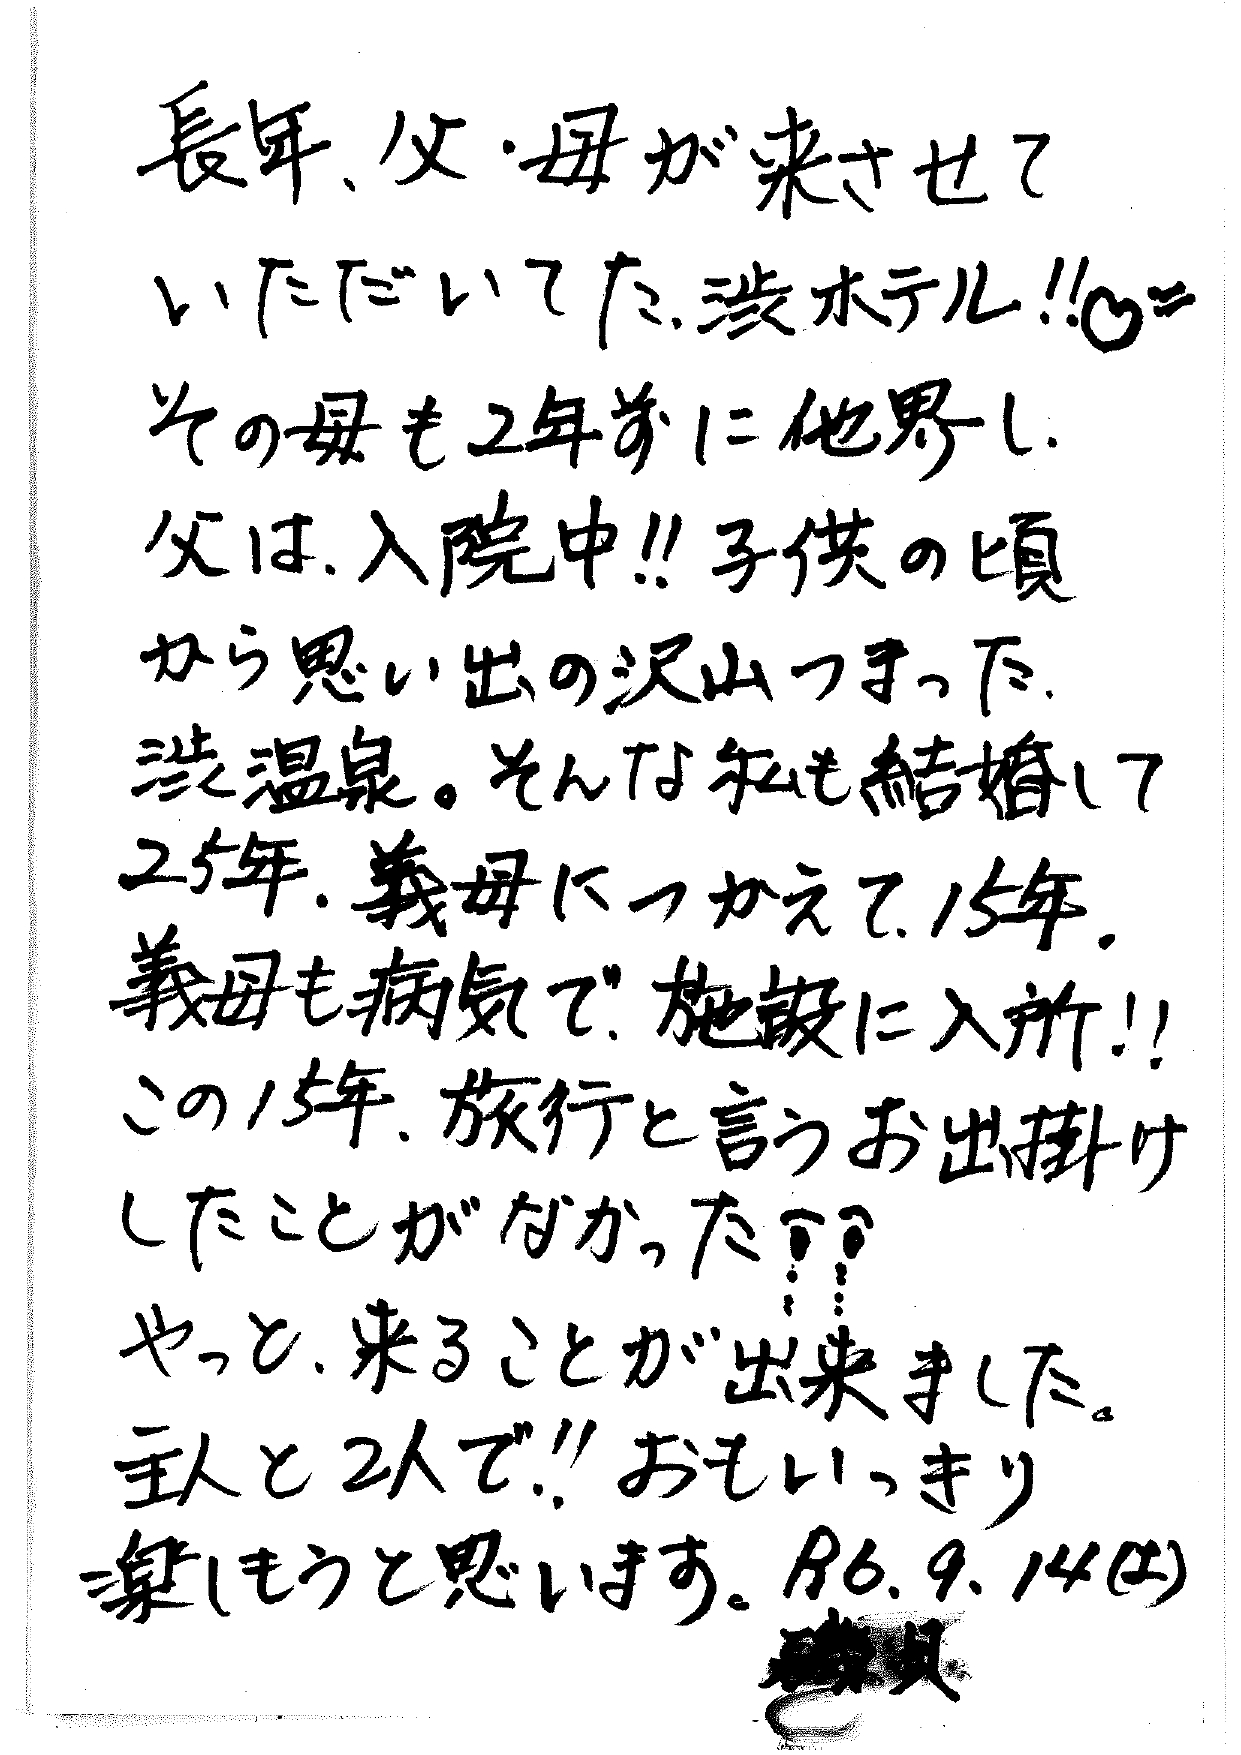 長年、父・母が来させて
いただいてた、渋ホテル!!♡
その母も2年前に他界し、
父は、入院中!!子供の頃
から思い出の沢山つまった、
渋温泉。そんな私も結婚して
25年、義母につかえて、15年、
義母も病気で、施設に入所!!
この15年、旅行と言うお出掛け
したことがなかった
やっと、来ることが出来ました。
主人と2人で、!!おもいっきり
楽しもうと思います。R6.9.14(土)